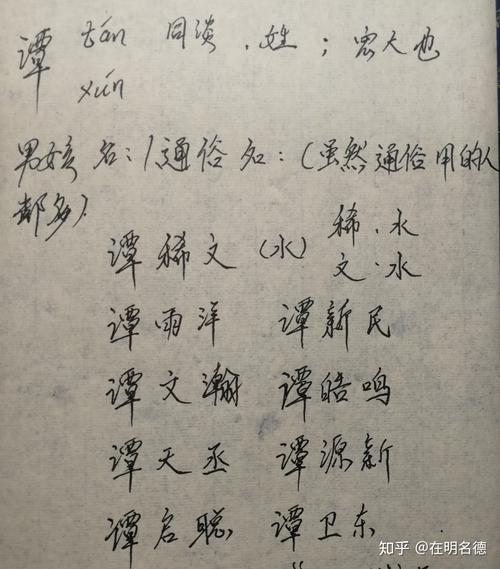 谭 tán 同谈，姓；宏大也
xún
男女孩名：1通俗名：（虽然通俗用的人
都多）
谭稀文（水） 稀·水
文·水
谭雨洋 谭新民
谭文瀚 谭皓鸣
谭天丞 谭源新
谭启聪 谭卫东
知乎 @在明名德